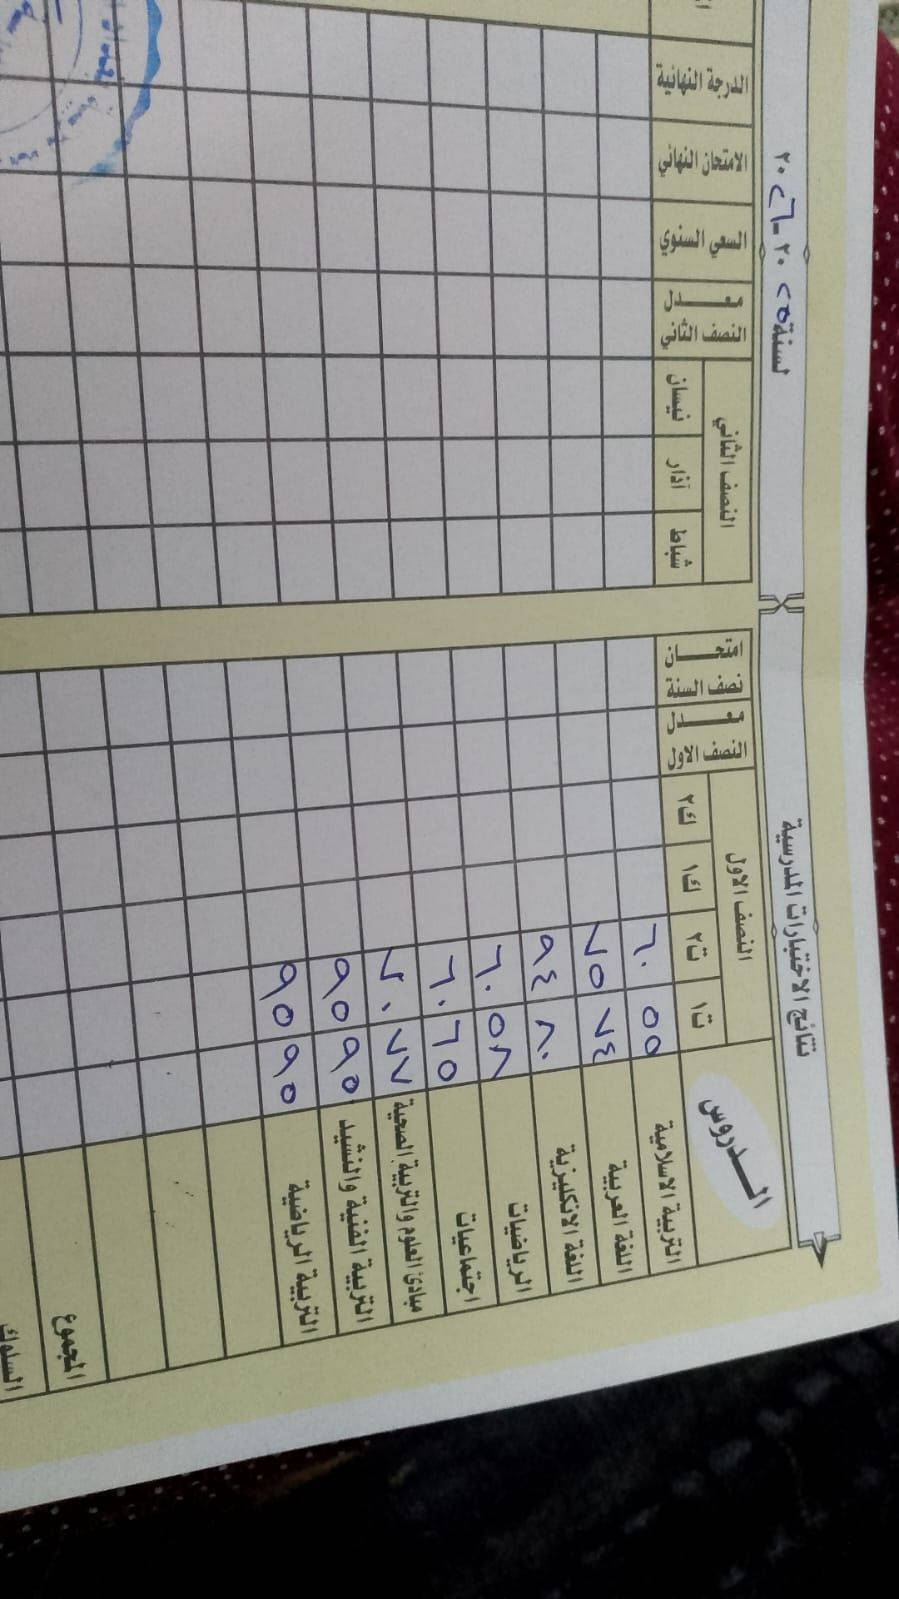 نتائج الاختبارات المدرسية
لسنة ٢٠٢٥ - ٢٠٢٦
الـدروس
النصف الاول
ت١ ت٢ ك١ ك٢
معـدل النصف الاول
امتحـان نصف السنة
النصف الثاني
شباط آذار نيسان
معـدل النصف الثاني
السعي السنوي
الامتحان النهائي
الدرجة النهائية
التربية الاسلامية ٥٥ ٦٠
اللغة العربية ٧٤ ٧٥
اللغة الانكليزية ٨٠ ٩٤
الرياضيات ٥٨ ٦٠
اجتماعيات ٦٥ ٦٠
مبادئ العلوم والتربية الصحية ٧٧ ٧٠
التربية الفنية والنشيد ٩٥ ٩٥
التربية الرياضية ٩٥ ٩٥
المجموع
السلوك